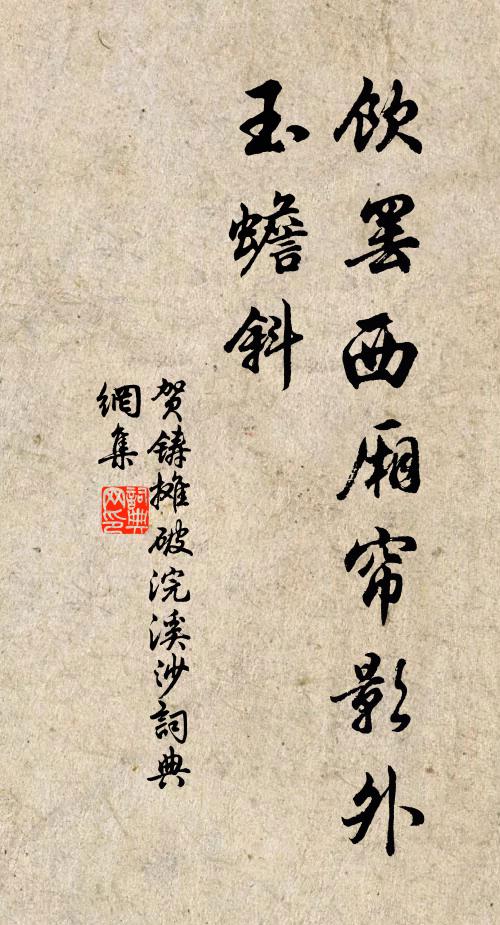 飲罢西厢帘影外
玉蟾斜
贺鑄摊破浣溪沙詞典
網集
詞典网印